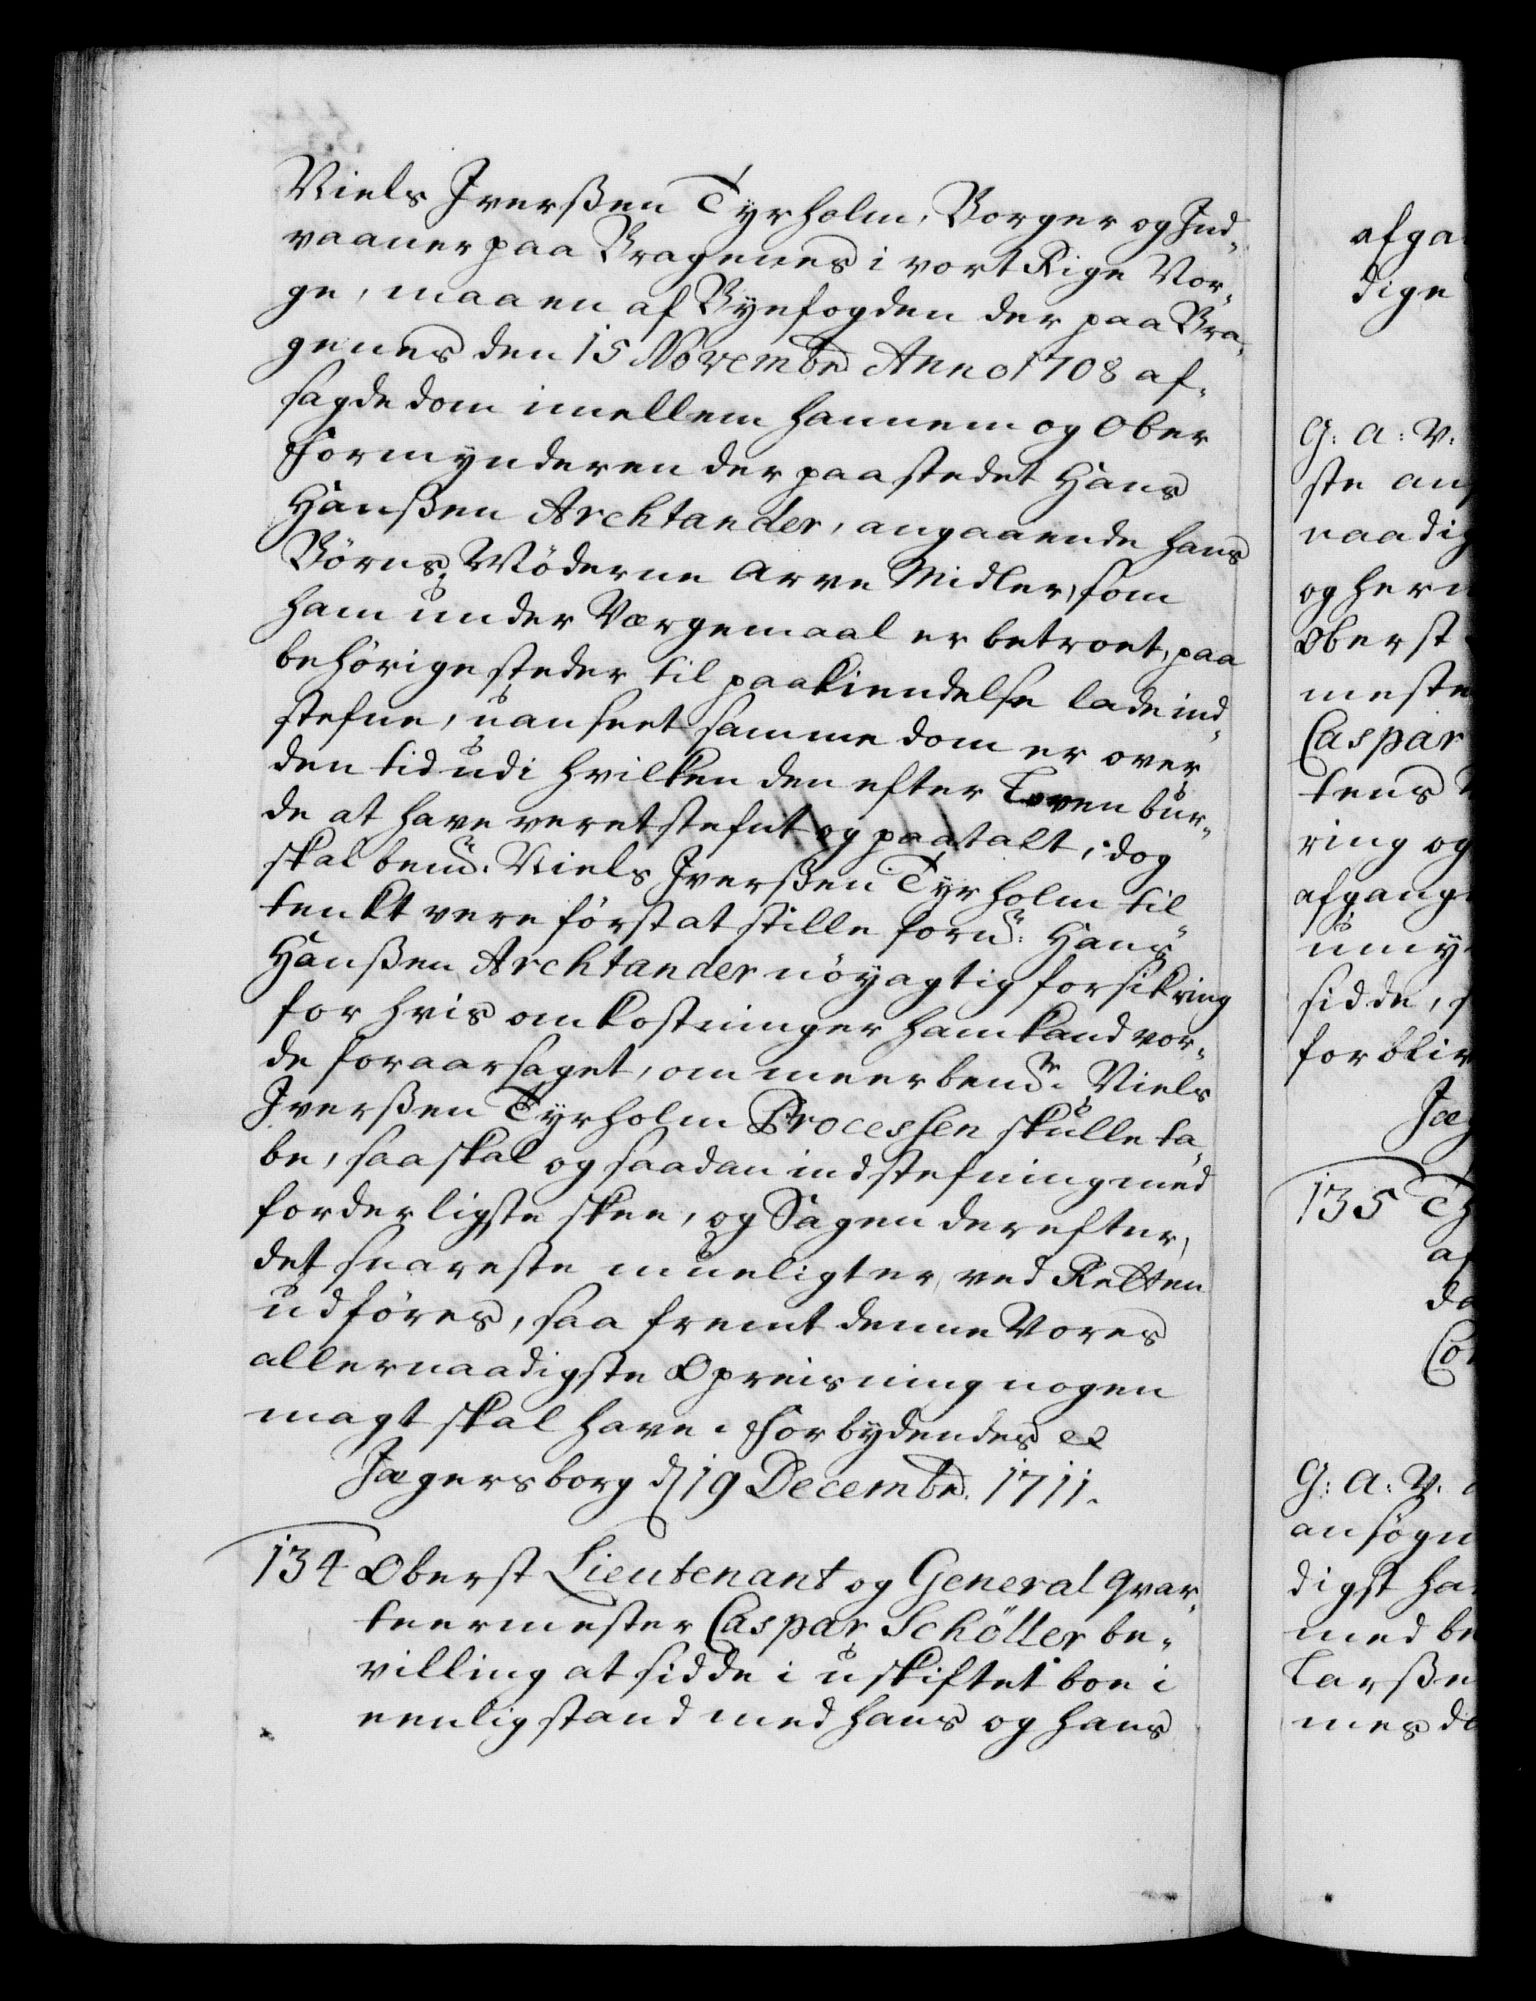 Niels Iverßen Tyrholm, Borger og Ind-
vaaner paa Bragenes i vort Rige Nor-
ge, maa en af Byefogden der paa Bra-
genes den 15 Novembr Anno 1708 af-
sagde dom imellem hannem og Ober
Formynderen der paa stedet Hans
Hanßen Archtander, angaaende hans
Börns Möderne Arve Midler, som
ham under Værgemaal er betroet, paa
behörige steder til paakiendelse lade ind-
stefne, uanseet samme dom er over
den tid udi hvilken den efter Loven bur-
de at have veret stefnt og paatalt, dog
skal bemt. Niels Iverßen Tyrholm til-
tenkt vere först at stille fornt: Hans
Hanßen Archtander nöyagtig forsikring
for hvis omkostninger ham kand vor-
de foraarsaget, om meerbemte. Niels
Iverßen Tyrholm Processen skulle ta-
be, saa skal og saadan indstefning med
forderligste skee, og Sagen derefter,
det snareste mueligt er, ved Retten
udföres, saa fremt denne Vores
allernaadigste Opreisning nogen
magt skal have. Forbydendes etc
Jægersborg d 19 Decembr. 1711.
134 Oberst Lieutenant og General Qvar-
teermester Caspar Schöller be-
villing at sidde i uskiftet boe i
eenlig stand med hans og hans
afga
dige
G: A: V:
ste an
naadig
og her
Oberst
meste
Caspar
tens
ring og
afgang
umy
sidde,
forbliv
Jæg
135 Th
af
da
Co
G: A: V.
ansögn
digst ha
med be
Larße
mes de